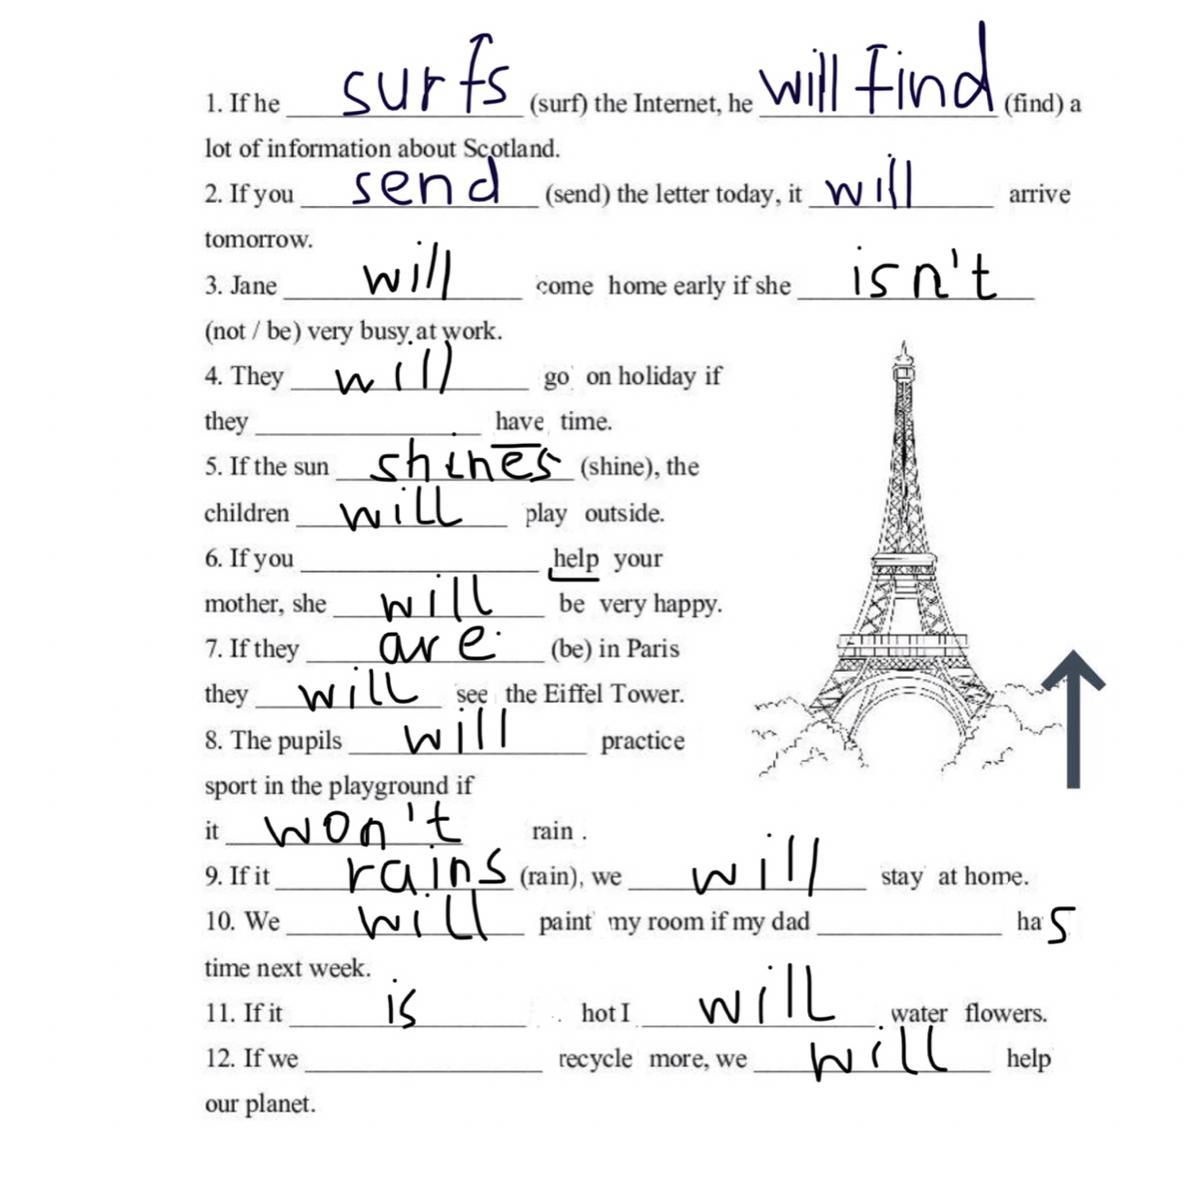 1. If he surfs (surf) the Internet, he will find (find) a
lot of information about Scotland.
2. If you send (send) the letter today, it will arrive
tomorrow.
3. Jane will come home early if she isn't
(not / be) very busy at work.
4. They will go on holiday if
they ____ have time.
5. If the sun shines (shine), the
children will play outside.
6. If you ____ help your
mother, she will be very happy.
7. If they are (be) in Paris
they will see the Eiffel Tower.
8. The pupils will practice
sport in the playground if
it won't rain .
9. If it rains (rain), we will stay at home.
10. We will paint my room if my dad ____ has
time next week.
11. If it is . hot I will water flowers.
12. If we ____ recycle more, we will help
our planet.